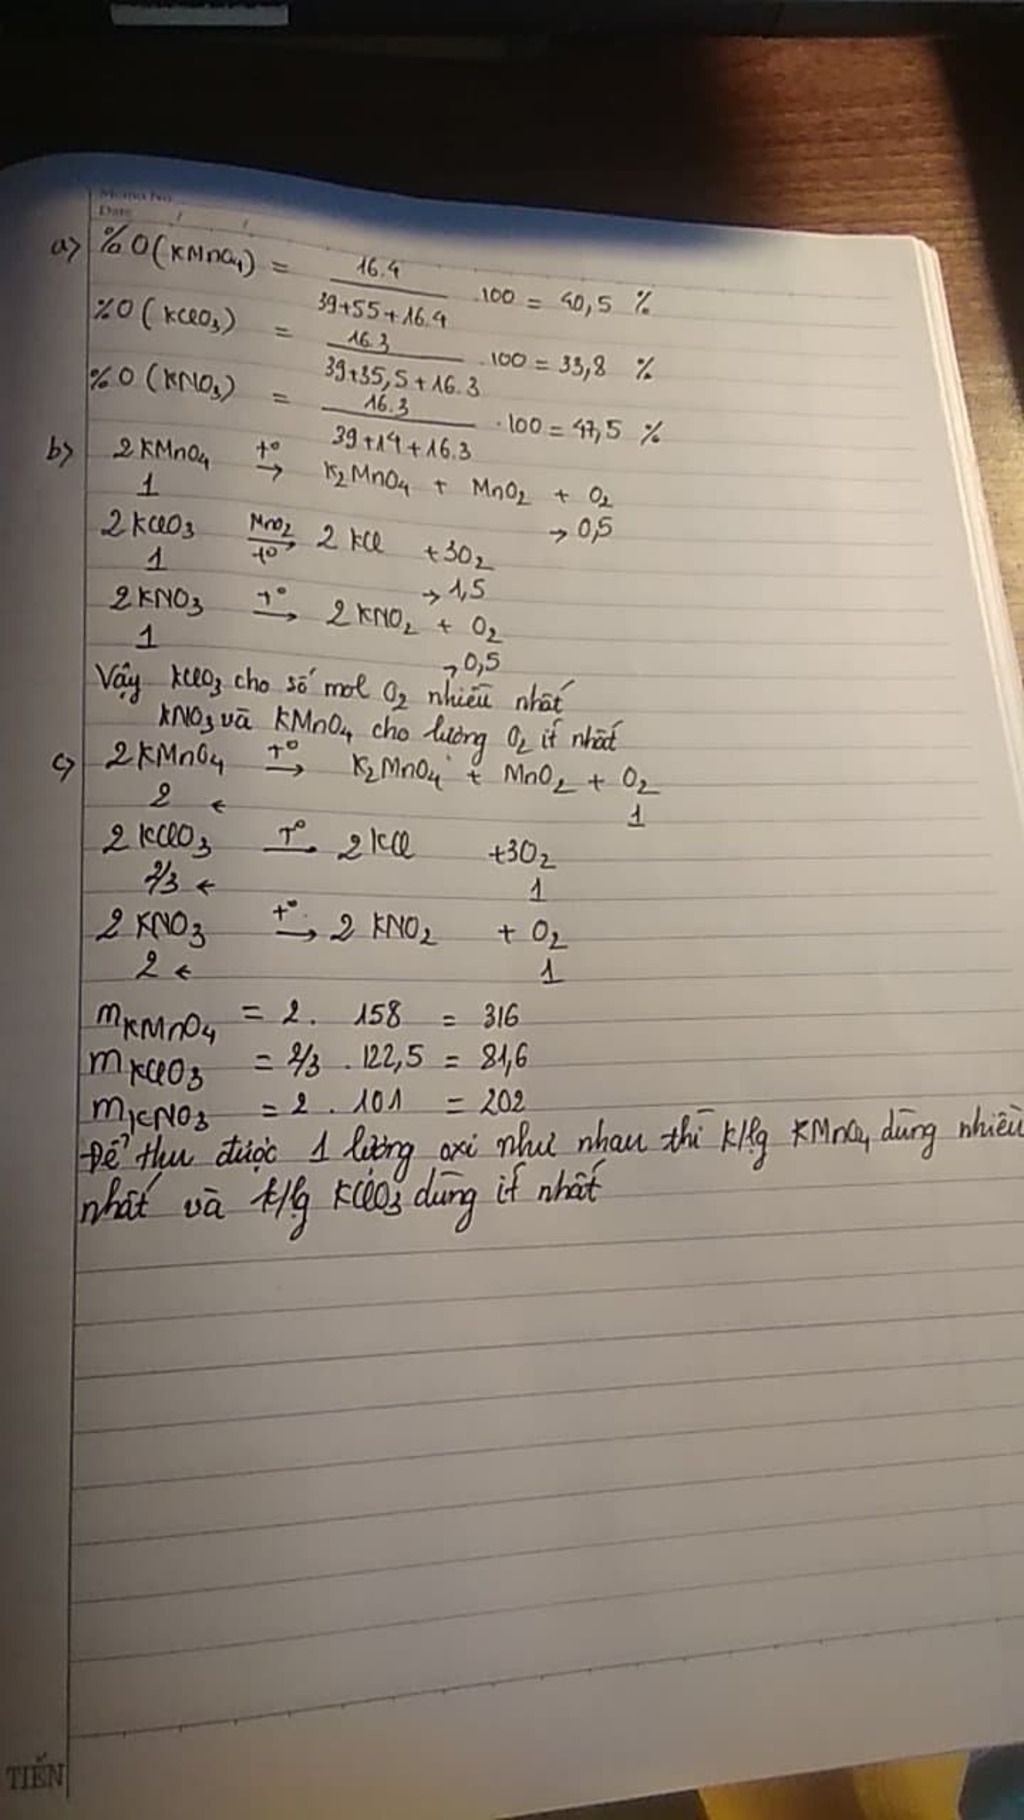 Memo No.
Date / /
a> %O(KMnO₄) = 16.4 / 39+55+16.4 .100 = 40,5 %
%O(KClO₃) = 16.3 / 39+35,5+16.3 .100 = 33,8 %
%O(KNO₃) = 16.3 / 39+14+16.3 .100 = 47,5 %
b> 2KMnO₄ t° → K₂MnO₄ + MnO₂ + O₂
1 → 0,5
2KClO₃ MnO₂ → t° 2KCl + 3O₂
1 → 1,5
2KNO₃ t° → 2KNO₂ + O₂
1 → 0,5
Vậy KClO₃ cho số mol O₂ nhiều nhất
KNO₃ và KMnO₄ cho lượng O₂ ít nhất
c> 2KMnO₄ t° → K₂MnO₄ + MnO₂ + O₂
2 ← 1
2KClO₃ t° → 2KCl + 3O₂
2/3 ← 1
2KNO₃ t° → 2KNO₂ + O₂
2 ← 1
mKMnO₄ = 2. 158 = 316
mKClO₃ = 2/3 . 122,5 = 81,6
mKNO₃ = 2 . 101 = 202
Để thu được 1 lượng oxi như nhau thì k/lg KMnO₄ dùng nhiều
nhất và k/lg KClO₃ dùng ít nhất
TIẾN